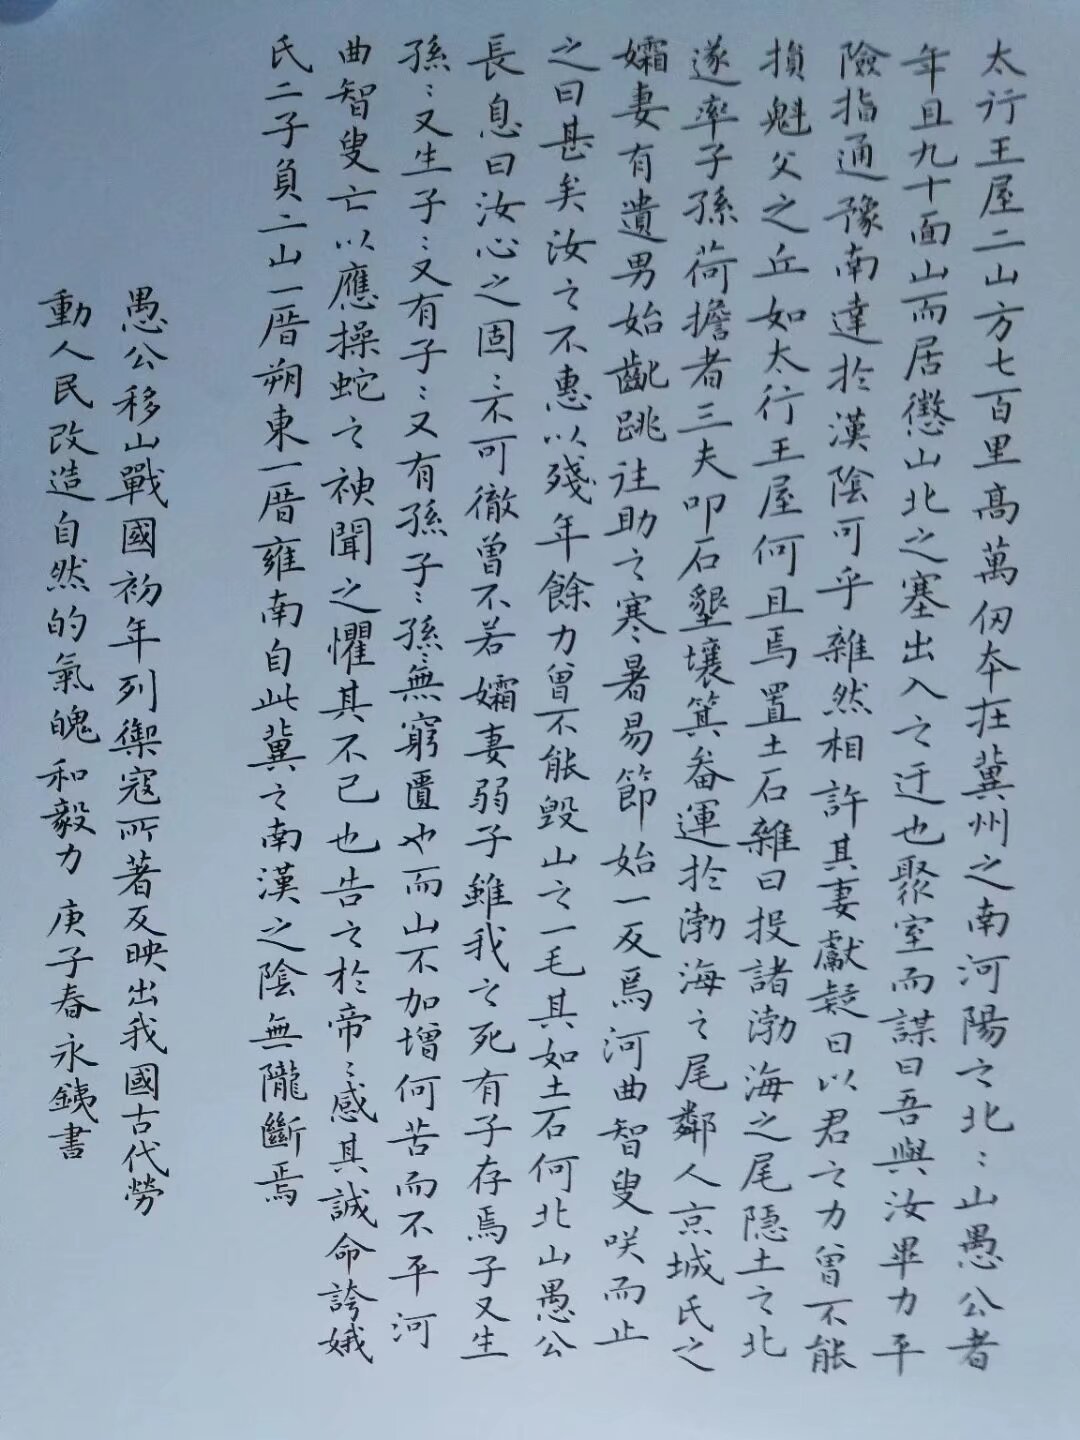 太行王屋二山方七百里高萬仞本在冀州之南河陽之北〻山愚公者
年且九十面山而居懲山北之塞出入之迂也聚室而謀曰吾與汝畢力平
險指通豫南達於漢陰可乎雜然相許其妻獻疑曰以君之力曾不能
損魁父之丘如太行王屋何且焉置土石雜曰投諸渤海之尾隱土之北
遂率子孫荷擔者三夫叩石墾壤箕畚運於渤海之尾鄰人京城氏之
孀妻有遺男始齔跳往助之寒暑易節始一反焉河曲智叟咲而止
之曰甚矣汝之不惠以殘年餘力曾不能毀山之一毛其如土石何北山愚公
長息曰汝心之固〻不可徹曾不若孀妻弱子雖我之死有子存焉子又生
孫〻又生子〻又有子〻又有孫子〻孫〻無窮匱也而山不加增何苦而不平河
曲智叟亡以應操蛇之神聞之懼其不已也告之於帝〻感其誠命誇娥
氏二子負二山一厝朔東一厝雍南自此冀之南漢之陰無隴斷焉
愚公移山戰國初年列禦寇所著反映出我國古代勞
動人民改造自然的氣魄和毅力 庚子春永銕書